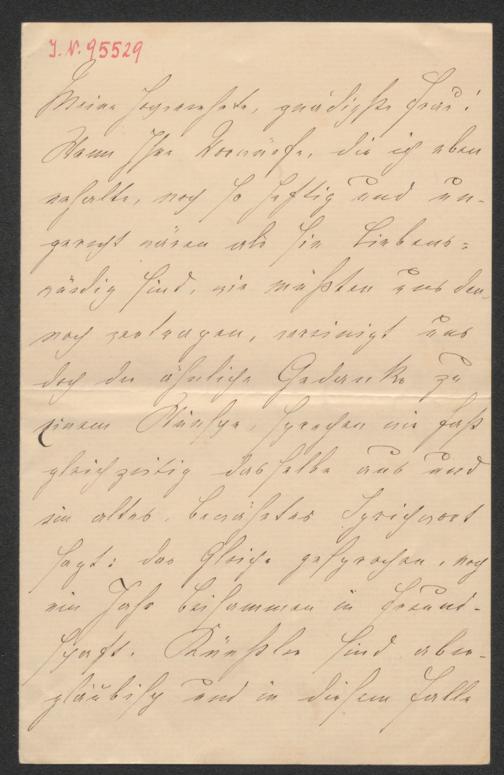 J. N. 95529
Meine hochverehrte, gnädigste Frau!
Wenn Ihre Vorwürfe, die ich eben
erhalte, noch so heftig und un-
gerecht wären als sie liebens-
würdig sind, wir müßten uns den-
noch vertragen, vereinigt uns
doch der ähnliche Gedanke zu
einem Wunsche, sprechen wir fast
gleichzeitig dasselbe aus und
ein altes, bewährtes Sprichwort
sagt: das Gleiche gesprochen, noch
ein Jahr beisammen in Freund-
schaft. Künstler sind aber-
gläubisch und in diesem Falle